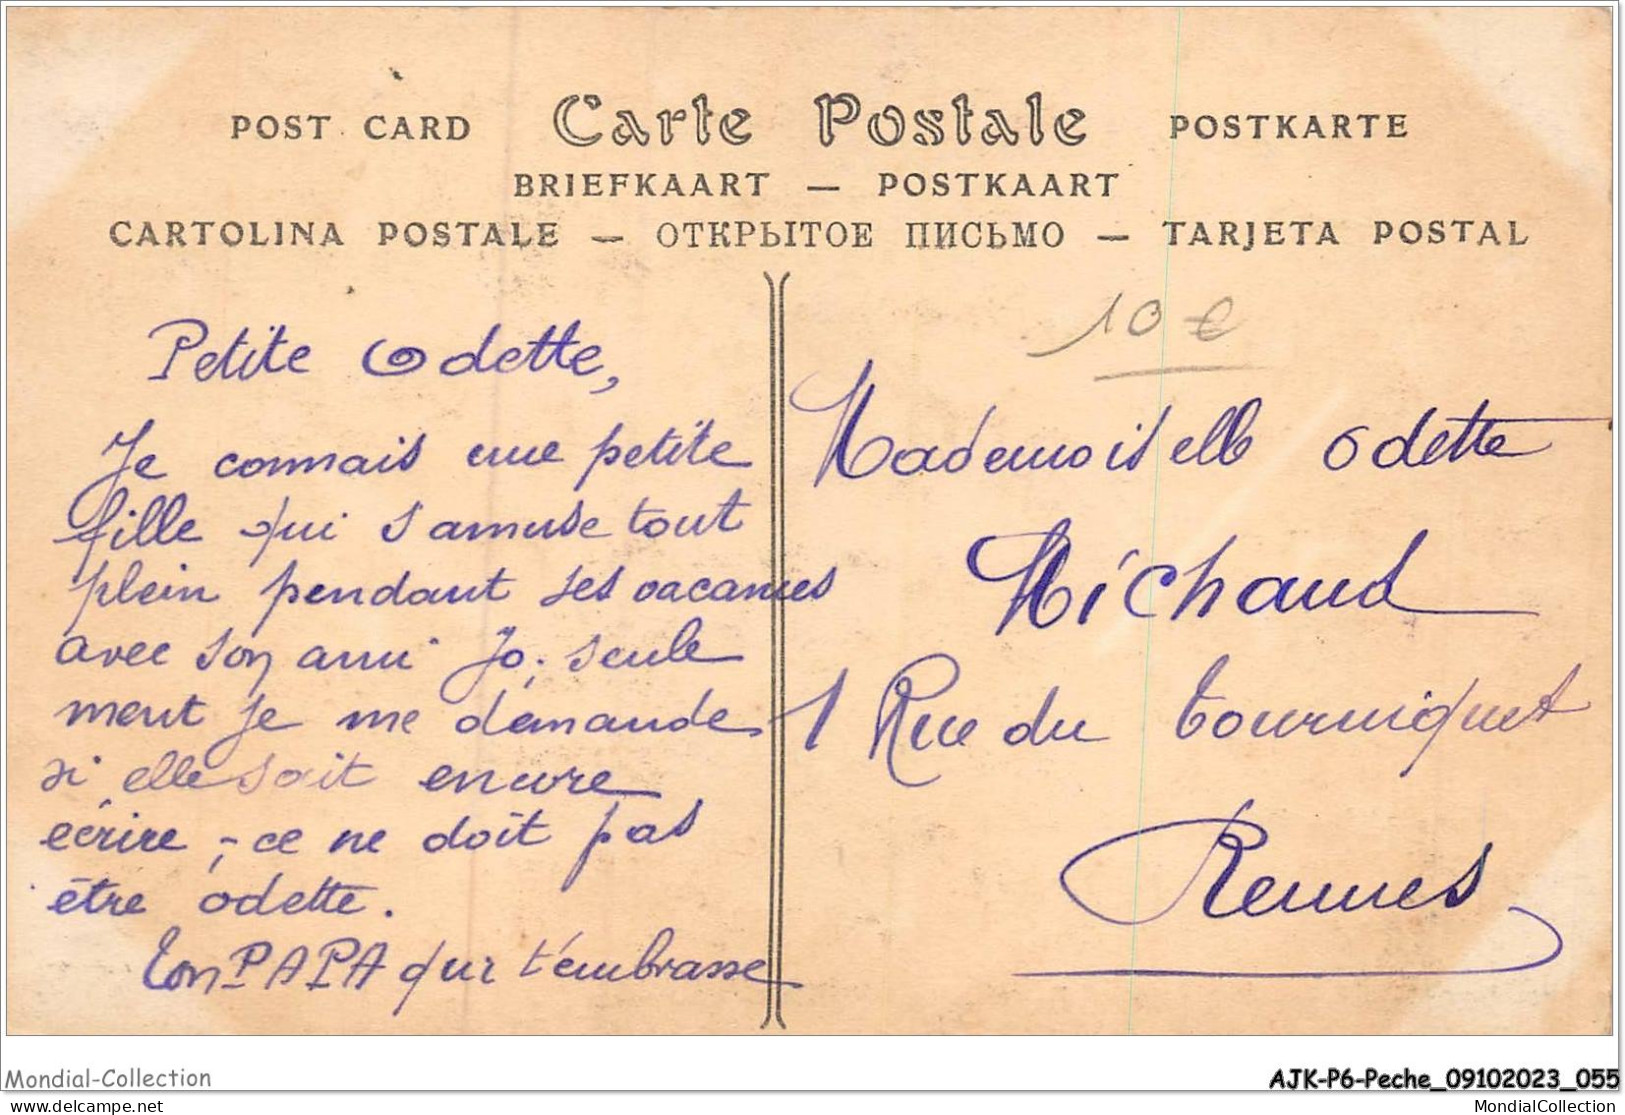 POST CARD Carte Postale POSTKARTE
BRIEFKAART — POSTKAART
CARTOLINA POSTALE — ОТКРЫТОЕ ПИСЬМО — TARJETA POSTAL
10 €
Petite Odette,
Je connais une petite
fille qui s'amuse tout
plein pendant ses vacances
avec son ami Jo. seule
ment je me demande
si elle sait encore
écrire, - ce ne doit pas
être odette.
Ton PAPA qui t'embrasse
Mademoiselle Odette
Michaud
1 Rue du tourniquet
Rennes
Mondial-Collection
AJK-P6-Peche_09102023_055
delcampe.net
MondialCollection